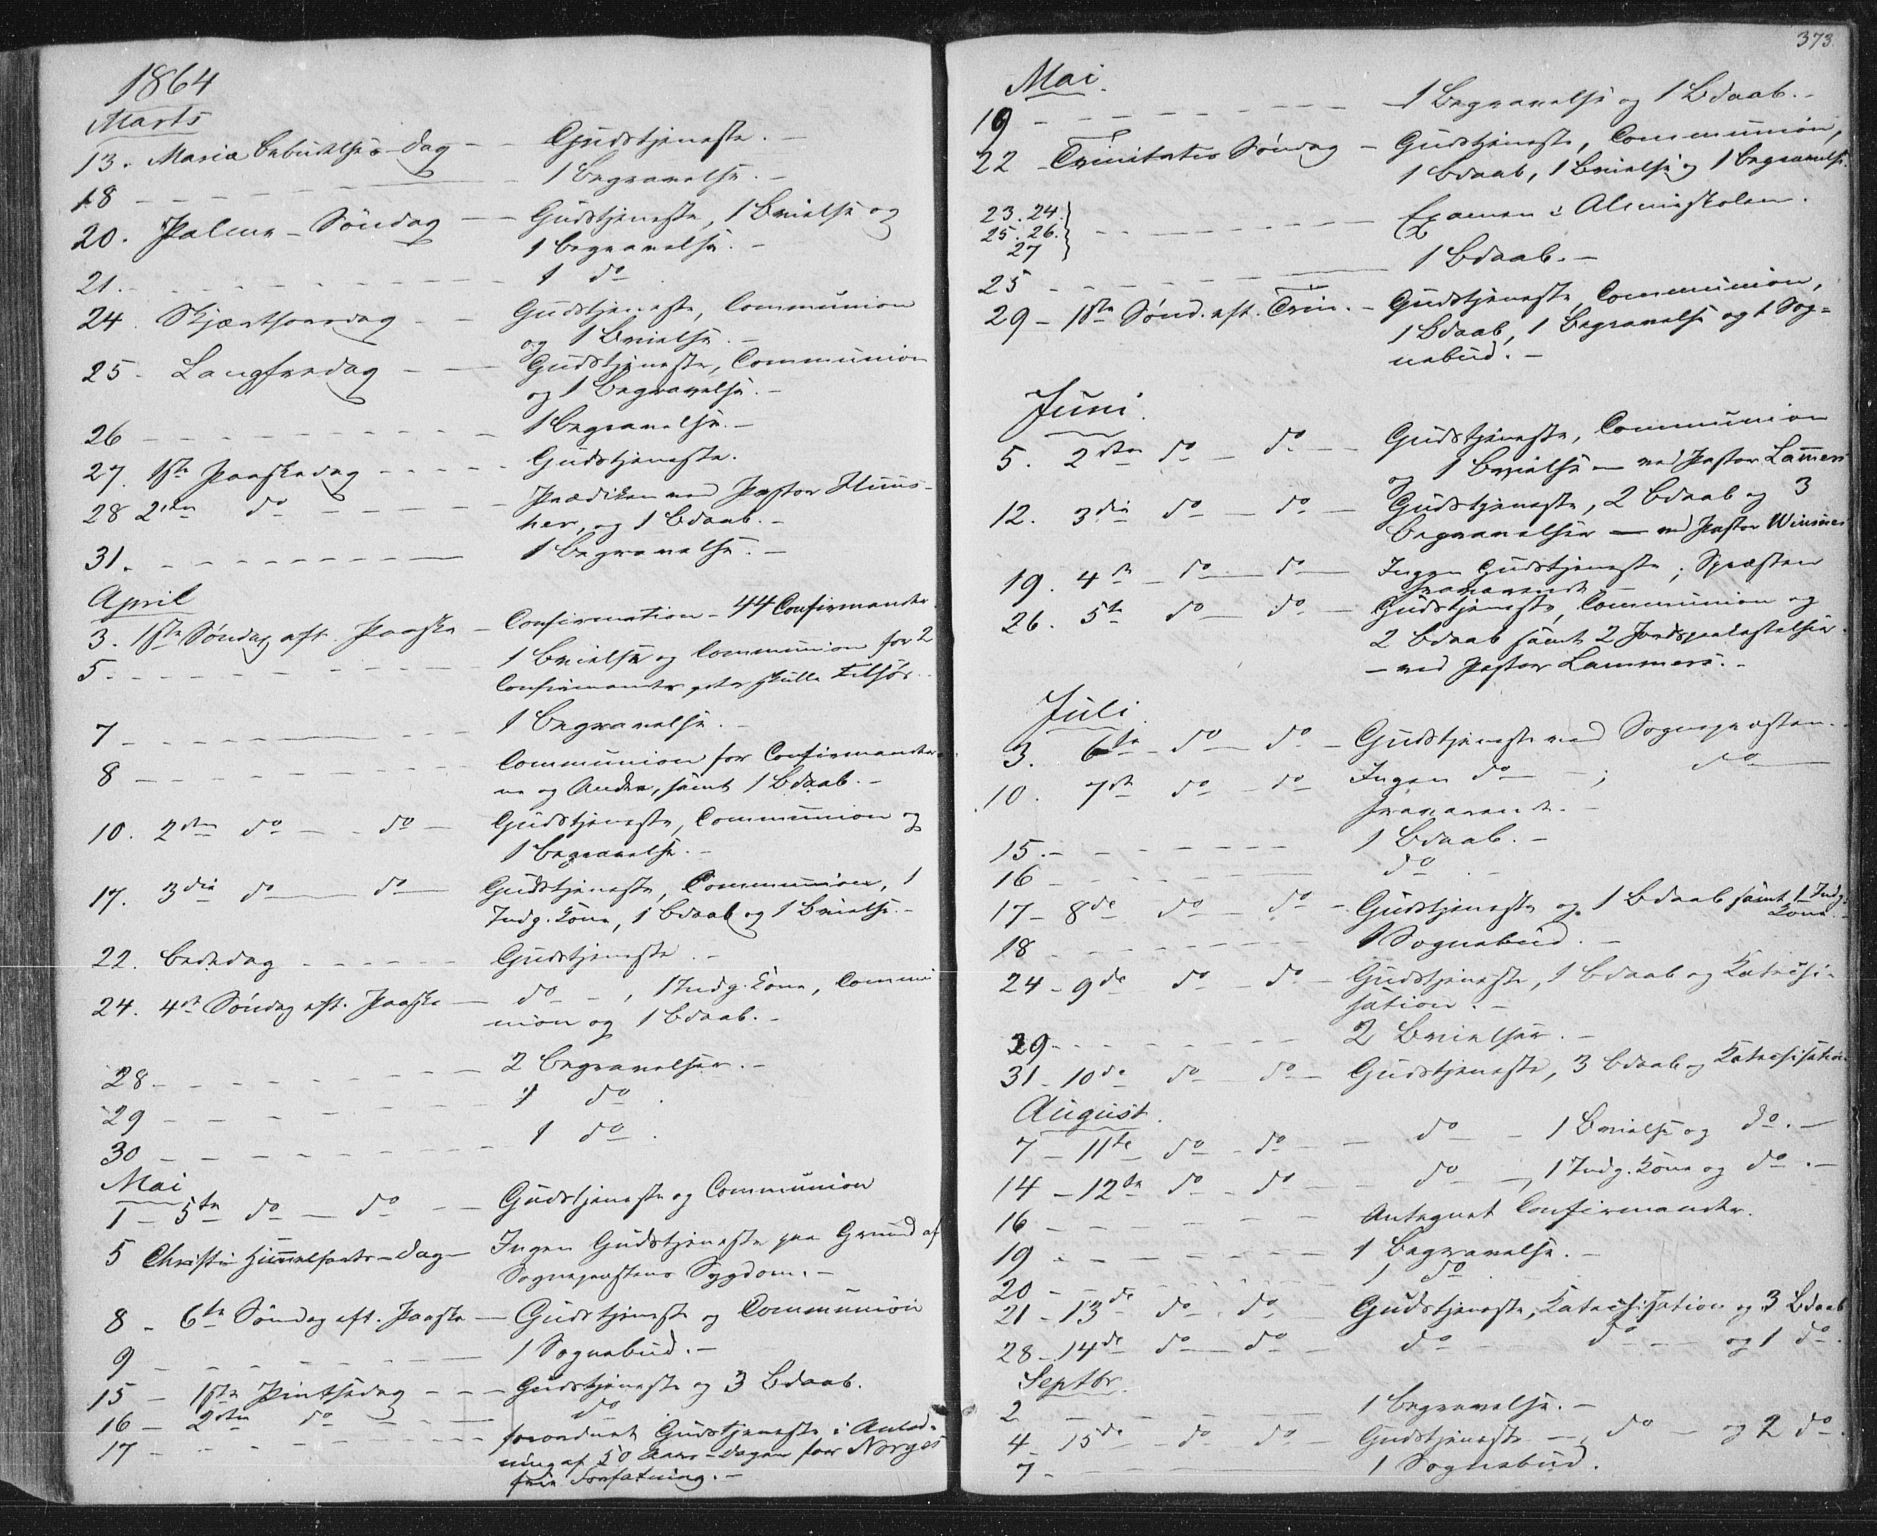 1864
Marts
13. Mariæ Bebudelses-Dag - - Gudstjeneste. -
18 - - - 1 Begravelse. -
20. Palme-Søndag - - Gudstjeneste, 1 Vielse og
1 Begravelse. -
21. - - - 1 do
24. Skjærthorsdag - - Gudstjeneste, Communion
og 1 Vielse. -
25. Langfredag - - Gudstjeneste, Communion
og 1 Begravelse. -
26 - - - 1 Begravelse. -
27. 1ste Paaskedag - - - Gudstjeneste.
28 2den do - - - Prædiken ved Pastor
og 1 Bdaab. -
31. - - - 1 Begravelse. -
April
3. 1ste Søndag eft. Paaske - Confirmation - 44 Confirmander.
5. - - - 1 Vielse og Communion for 2
Confirmander, skulle tilsøs.
7 - - - 1 Begravelse. -
8 - - - Communion for Confirmander-
ne og Andre, samt 1 Bdaab. -
10. 2den do - - do - Gudstjeneste, Communion og
1 Begravelse. -
17. 3die do - do - Gudstjeneste, Communion, 1
Indg. Kone, 1 Bdaab og 1 Vielse. -
22. Bededag - - - Gudstjeneste. -
24. 4de Søndag eft. Paaske - do - , 1 Indg. Kone, Commu-
nion og 1 Bdaab. -
28 - - - 2 Begravelser. -
29 - - - 1 do
30 - - - 1 do.
Mai
1 - 5te do - do - - Gudstjeneste og Communion
5 Christi Himmelfarts-Dag - Ingen Gudstjeneste paa Grund af
Sognepræstens Sygdom. -
8 - 6te Søndag eft. Paaske - Gudstjeneste og Communion
9 - - - 1 Sognebud. -
15 - 1ste Pintsedag - - - Gudstjeneste og 3 Bdaab.
16 - 2den do - - - do
17 - - - forordnet Gudstjeneste i Anled-
ning af 50 Aars-Dagen for Norges
frie Forfatning. -
373.
Mai.
19 - - - 1 Begravelse og 1 Bdaab. -
22 - Trinitatis Søndag - Gudstjeneste, Communion,
1 Bdaab, 1 Vielse og 1 Begravelse.
23. 24.
25. 26. - - - Examen i Almueskolen.
27
25 - - - 1 Bdaab. -
29 - 1ste Sønd. eft. Trin. - Gudstjeneste, Communion,
1 Bdaab, 1 Begravelse og 1 Sog-
nebud. -
Juni.
5. 2den do - do - - Gudstjeneste, Communion
og 1 Vielse - ved Pastor Lammers
12. 3die do - do - Gudstjeneste, 2 Bdaab og 3
Begravelser - ved Pastor
19. 4de - do - do - Ingen Gudstjeneste; Spræsten
fraværende -
26. 5te do do - Gudstjeneste, Communion og
2 Bdaab samt 2 Jordspaakastelser
- ved Pastor Lammers. -
Juli.
3. 6te - do - do - Gudstjeneste ved Sognepræsten. -
10. 7de do - do Ingen do - ; do -
fraværende. -
15. - - - 1 Bdaab. -
16 - - - do
17 - 8de do - do - Gudstjeneste og 1 Bdaab samt 1 Indg.
Kone. -
18 - - - 1 Sognebud. -
24 - 9de do - do - Gudstjeneste, 1 Bdaab og Katechi-
sation. -
29 - - - 2 Vielser. -
31 - 10de do - do - Gudstjeneste, 3 Bdaab og Katechisation
August.
7 - 11te do - do - - do - - 1 Vielse og do. -
14 - 12te do - do - - do - , 1 Indg. Kone og do. -
16 - - - Antegnet Confirmander.
19 - - - 1 Begravelse. -
20 - - - 1 do.
21 - 13de do - do, Gudstjeneste, Katechisation og 3 Bdaab
28 - 14de do - do - do - do - og 1 do.
Septbr.
2 - - - 1 Begravelse. -
4 - 15de - do - do Gudstjeneste - , do - og 2 do.
7 - - - 1 Sognebud.